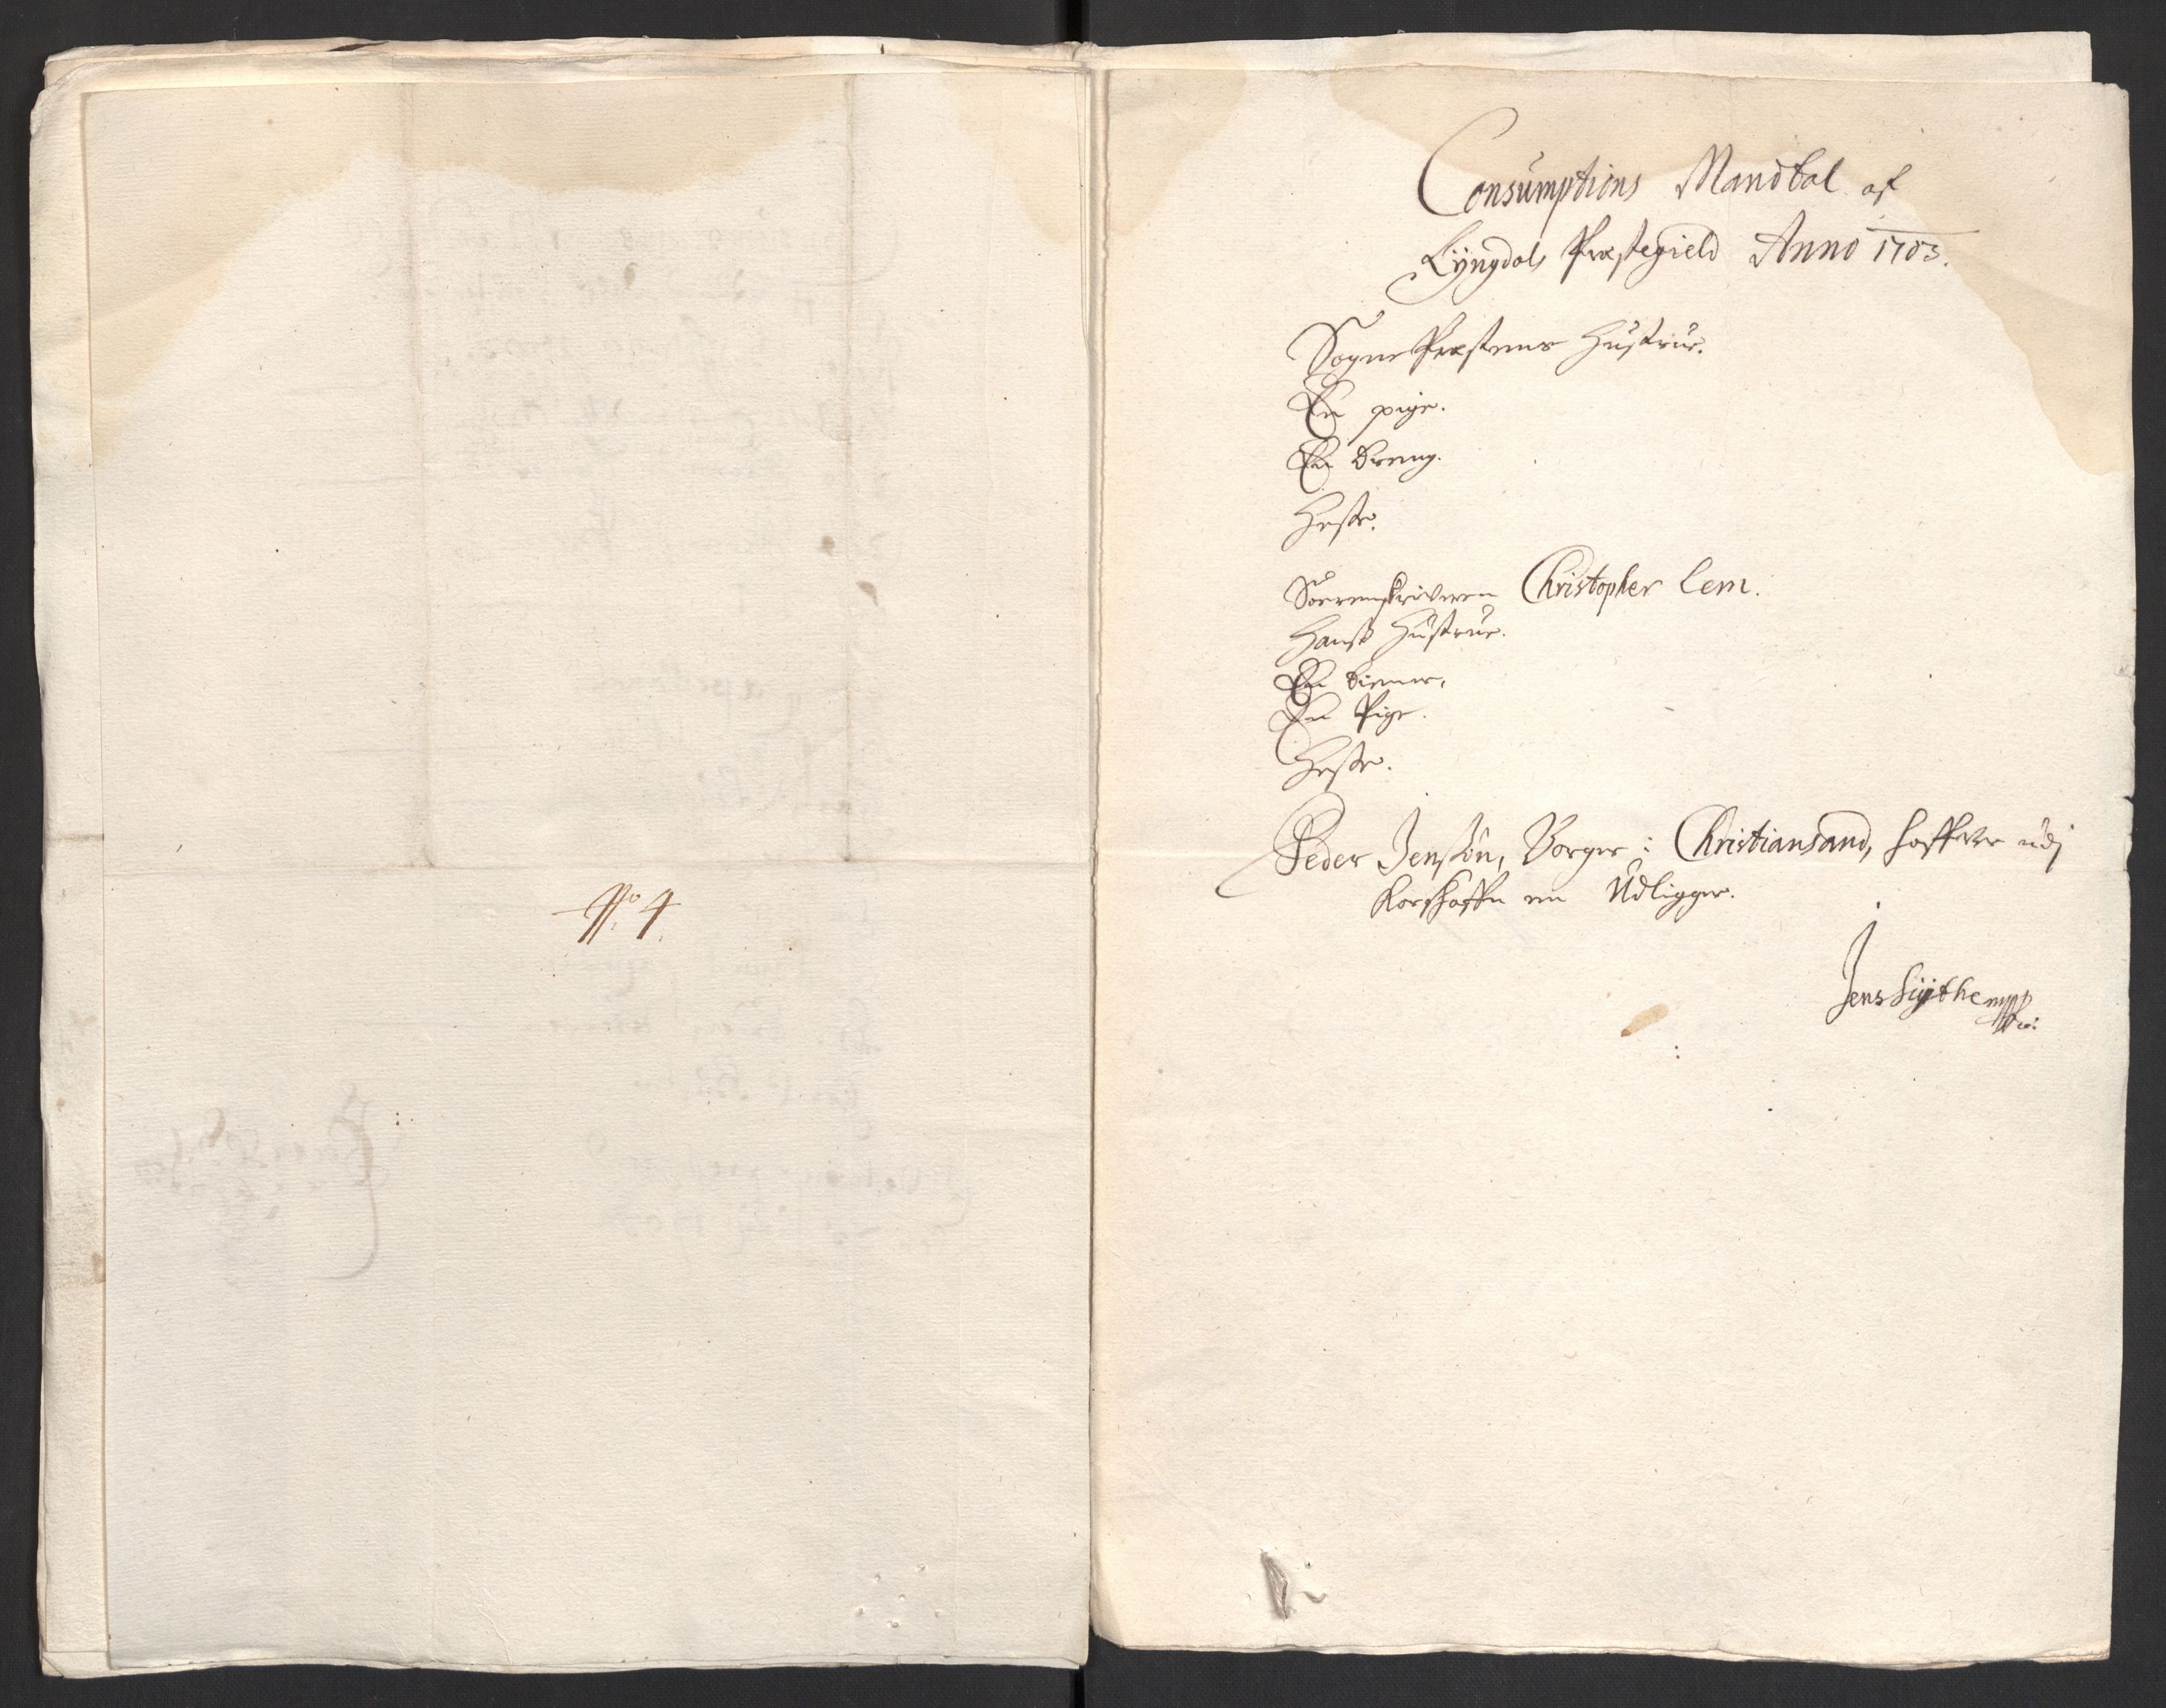 No. 4.
Consumptions Mandtal af
Lÿngdals Præstegield Anno 1703.
Sogne Præstens Hustrue.
En pige.
En dreng.
Heste.
Sorrenskriveren Christopher Lem.
Hanss Hustrue.
En diener,
En Pige.
Heste.
Peder Jensøn, Borger i Christiansand, hafver udj
Korshafn en Udligger.
Jens